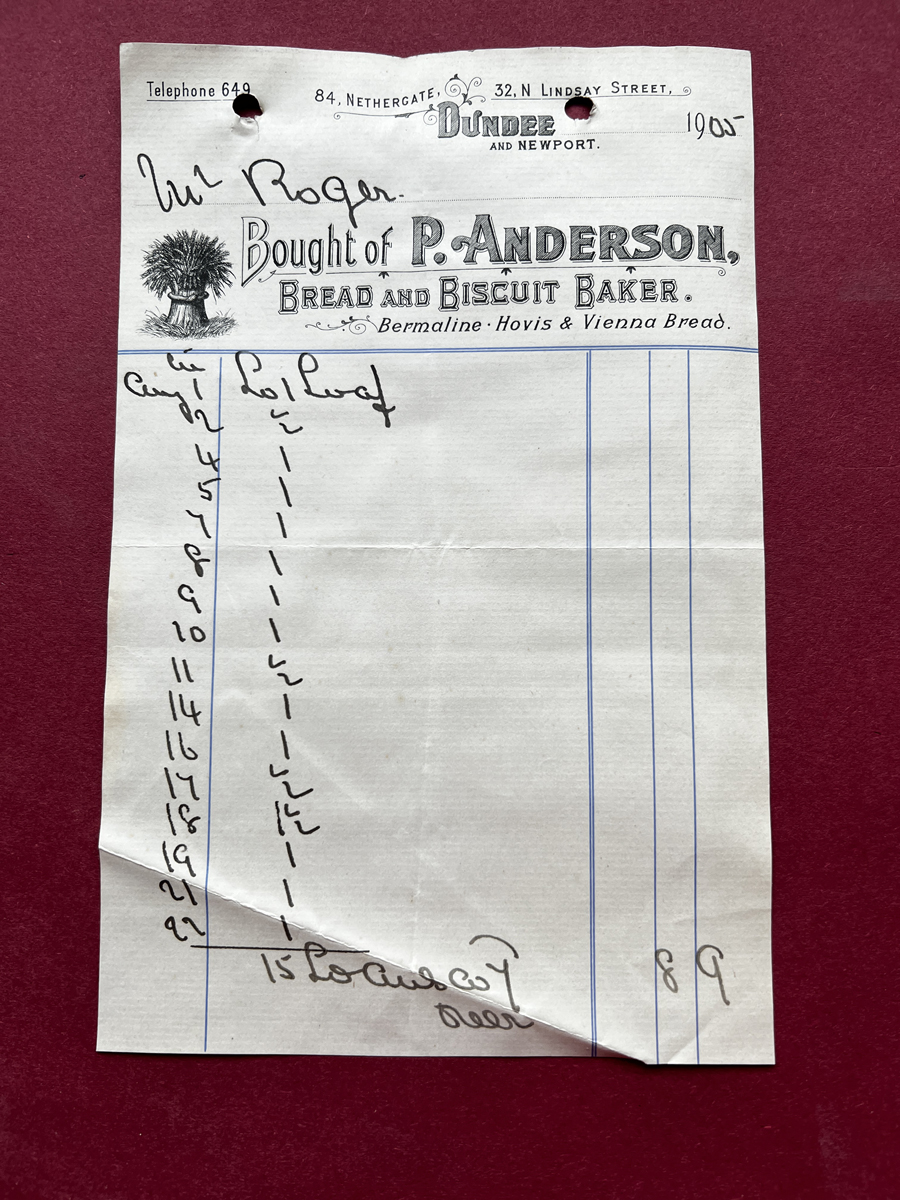 Telephone 649
84, NETHERGATE, 32, N LINDSAY STREET,
DUNDEE 1905
AND NEWPORT.
Mr Roger.
Bought of P. ANDERSON,
BREAD AND BISCUIT BAKER.
Bermaline · Hovis & Vienna Bread.
Aug 1 Lo 1 Loaf
2 ½
4 1
5 1
7 1
8 1
9 1
10 1
11 ½
14 1
15 1
17
18
19 1
21 1
22 1
15 Loaves 8 9